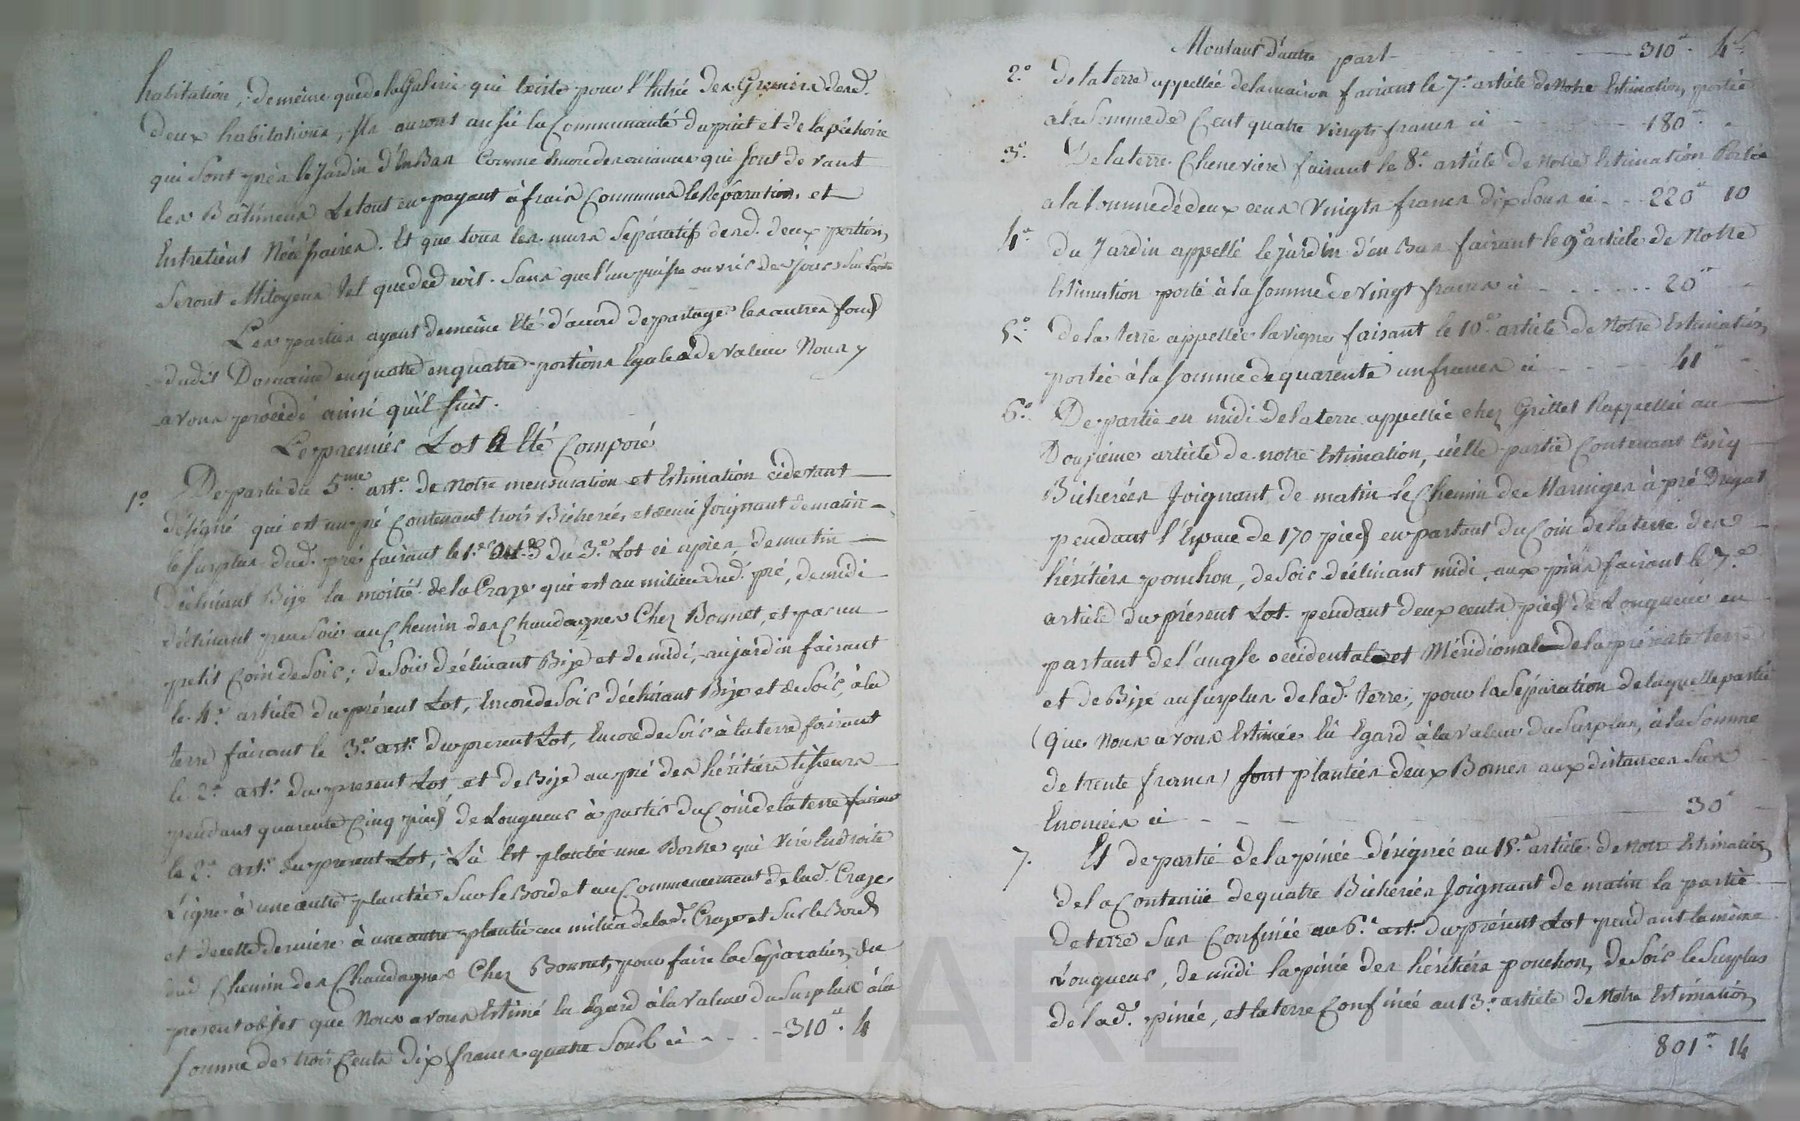 habitation, de même que de la Galerie qui Existe pour l'Entrée des Greniers desd.
deux habitations, Ils auront aussi la Communauté du puit et de la pêchoire
qui sont près le Jardin d'En Bas Comme Encore des aisances qui sont devant
les Bâtimens Le tout en payant à frais Communs les Réparations et
Entretient Nécéssaires. Et que tous les murs Séparatifs desd. deux portions
Seront Mitoyens tel que de droit. Sans que l'un puisse ouvrir des Jours Sur l'autre
Les parties ayant de même Eté d'accord de partager les autres fonds
dudit Domaine en quatre en quatre portions Egales de valeur Nous y
avons procédé ainsi qu'il suit.
Le premier Lot A Eté Composé
1.º De partie du 5.me art.e de notre mensuration et Estimation cidevant
désigné qui est un pré Contenant trois Bicherées et demi Joignant de matin
le surplus dud. pré faisant le 1.er art.e du 3.e Lot ci après, de matin
déclinant Bize la moitié de la Craze qui est au milieu dud. pré, de midi
déclinant peu Soir au Chemin des Chaudagnes Chez Bonnet, et par un
petit Coin de Soir; de Soir déclinant Bize et de midi, au jardin faisant
le 4.e article du présent Lot, Encore de Soir déclinant Bize et de Soir, à la
terre faisant le 3.e art.e du present Lot, Encore de Soir à la terre faisant
le 2.e art.e du present Lot et de Bize au pré des héritiers
pendant quarente Cinq pieds de Longueur à partir du Coin de la terre faisant
le 2.e art.e du present Lot, Là Est plantée une Borne qui Vire En droite
Ligne à une autre plantée Sur le Bord et au Commencement de lad. Craze
et de cette derniére à une autre plantée au milieu de lad. Craze et Sur le Bord
dud Chemin des Chaudagnes Chez Bonnet, pour faire la Séparation du
present objet que Nous avons Estimé Eu Egard à la valeur du Surplus à la
Somme de trois Cents dix francs quatre Sous ci - - - - 310.tt 4
Montant d'autre part - - - - 310.tt 4.s
2.º De la terre appellée de la maison faisant le 7.e article de Notre Estimation, portée
a la Somme de Cent quatre vingts francs ci - - - - 180.tt
3.º De la terre Cheneviere faisant le 8.e article de Notre Estimation Portée
a la Somme de deux cens Vingts francs dix Sous ci - - 220.tt 10
4.º du Jardin appellé le jardin d'en Bas faisant le 9.e article de Notre
Estimation porté à la Somme de vingt francs ci - - - - 20.tt
5.º de la terre appellée la vigne faisant le 10.e article de Notre Estimation,
portée à la Somme de quarente un francs ci - - - - 41.tt
6.º De partie en midi de la terre appellée chez Grittet Rappellée au
Douzième article de notre Estimation, icelle partie Contenant Cinq
Bicherées Joignant, de matin le Chemin de Maringes à pré
pendant l'Espace de 170 pieds en partant du Coin de la terre des
héritiers ponchon, de Soir déclinant midi, aux pins faisant le 7.e
article du présent Lot. pendant deux cents pieds de Longueur en
partant de l'angle occidental et Méridional de la présente terre
et de Bize au Surplus de lad. terre, pour la Séparation de laquelle partie
(que Nous avons Estimée Eu Egard à la valeur du Surplus, à la Somme
de trente francs) sont plantées deux Bornes aux distances Sus
Enoncées ci - - - - 30.tt
7. Et de partie de la pinée désignée au 15.e article de notre Estimation,
de la Contenue de quatre Bicherées Joignant de matin la partie
de terre Sus Confinée au 6.e art.e du présent Lot pendant la même
Longueur, de midi la pinée des héritiers ponchon, de Soir le Surplus
de lad. pinée, et la terre Confinée au 13.e article de Notre Estimation,
801.tt 14